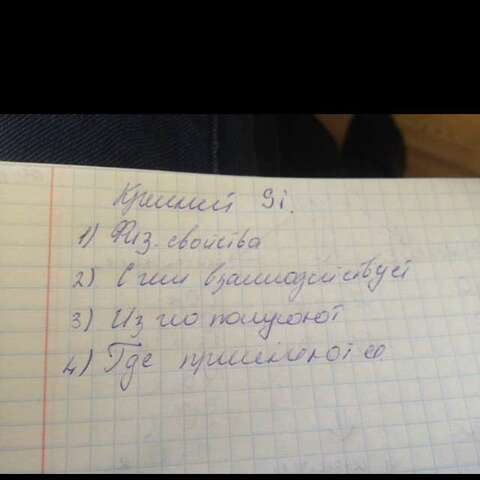 Кремний Si.
1) Физ. свойства
2) С чем взаимодействует
3) Из чего получают
4) Где применяют